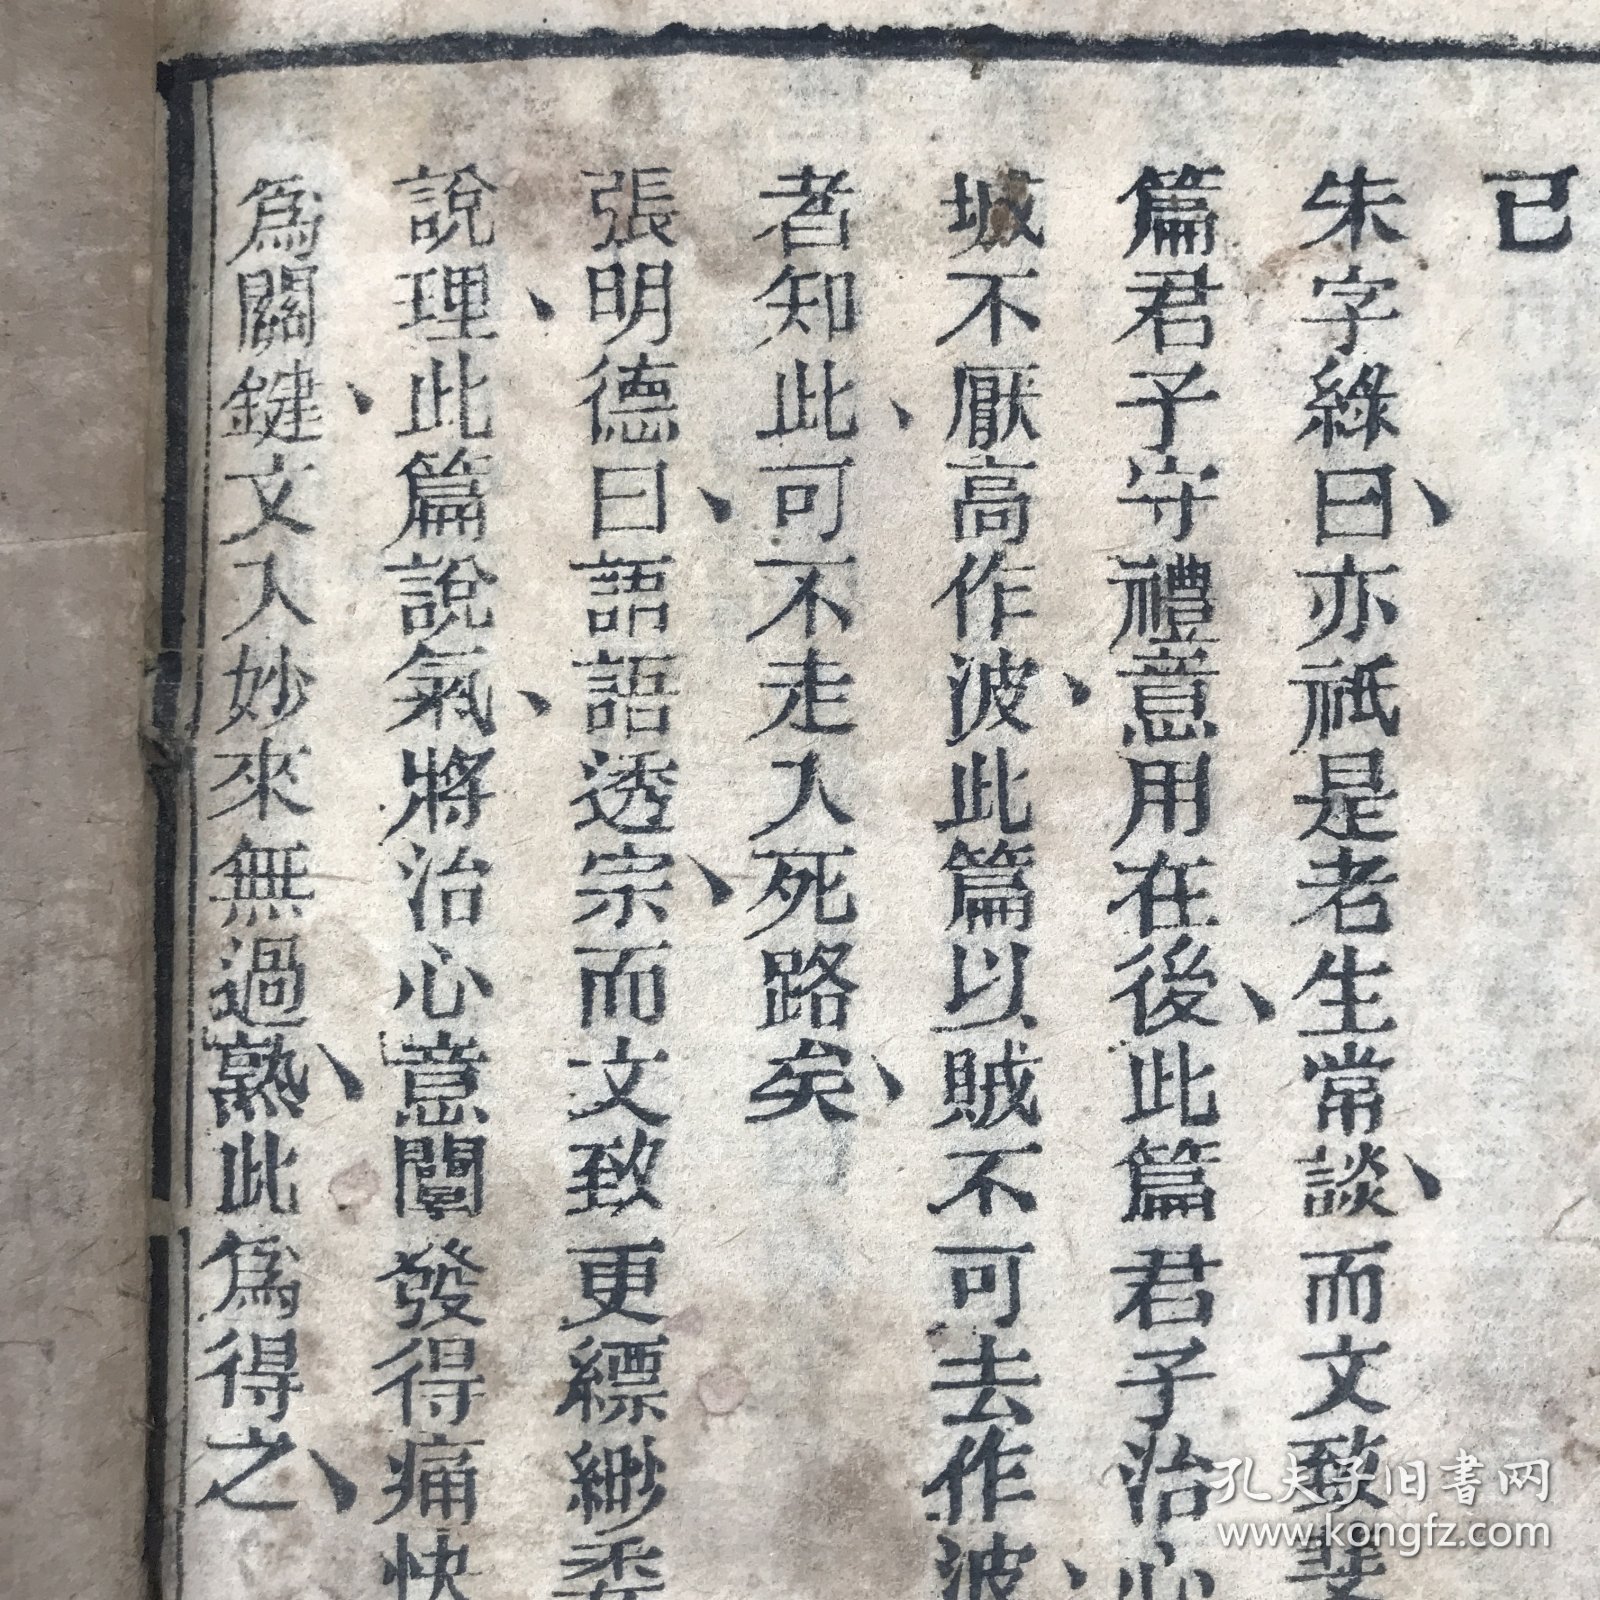 已
朱字綠曰亦祇是老生常談而文致雙
篇君子守禮意用在後此篇君子治心
城不厭高作波此篇以賊不可去作波
者知此可不走入死路矣
張明德曰語語透宗而文致更縹緲委
說理此篇說氣將治心意闡發得痛快
為關鍵文入妙來無過熟此為得之
孔夫子旧書网
www.kongfz.com